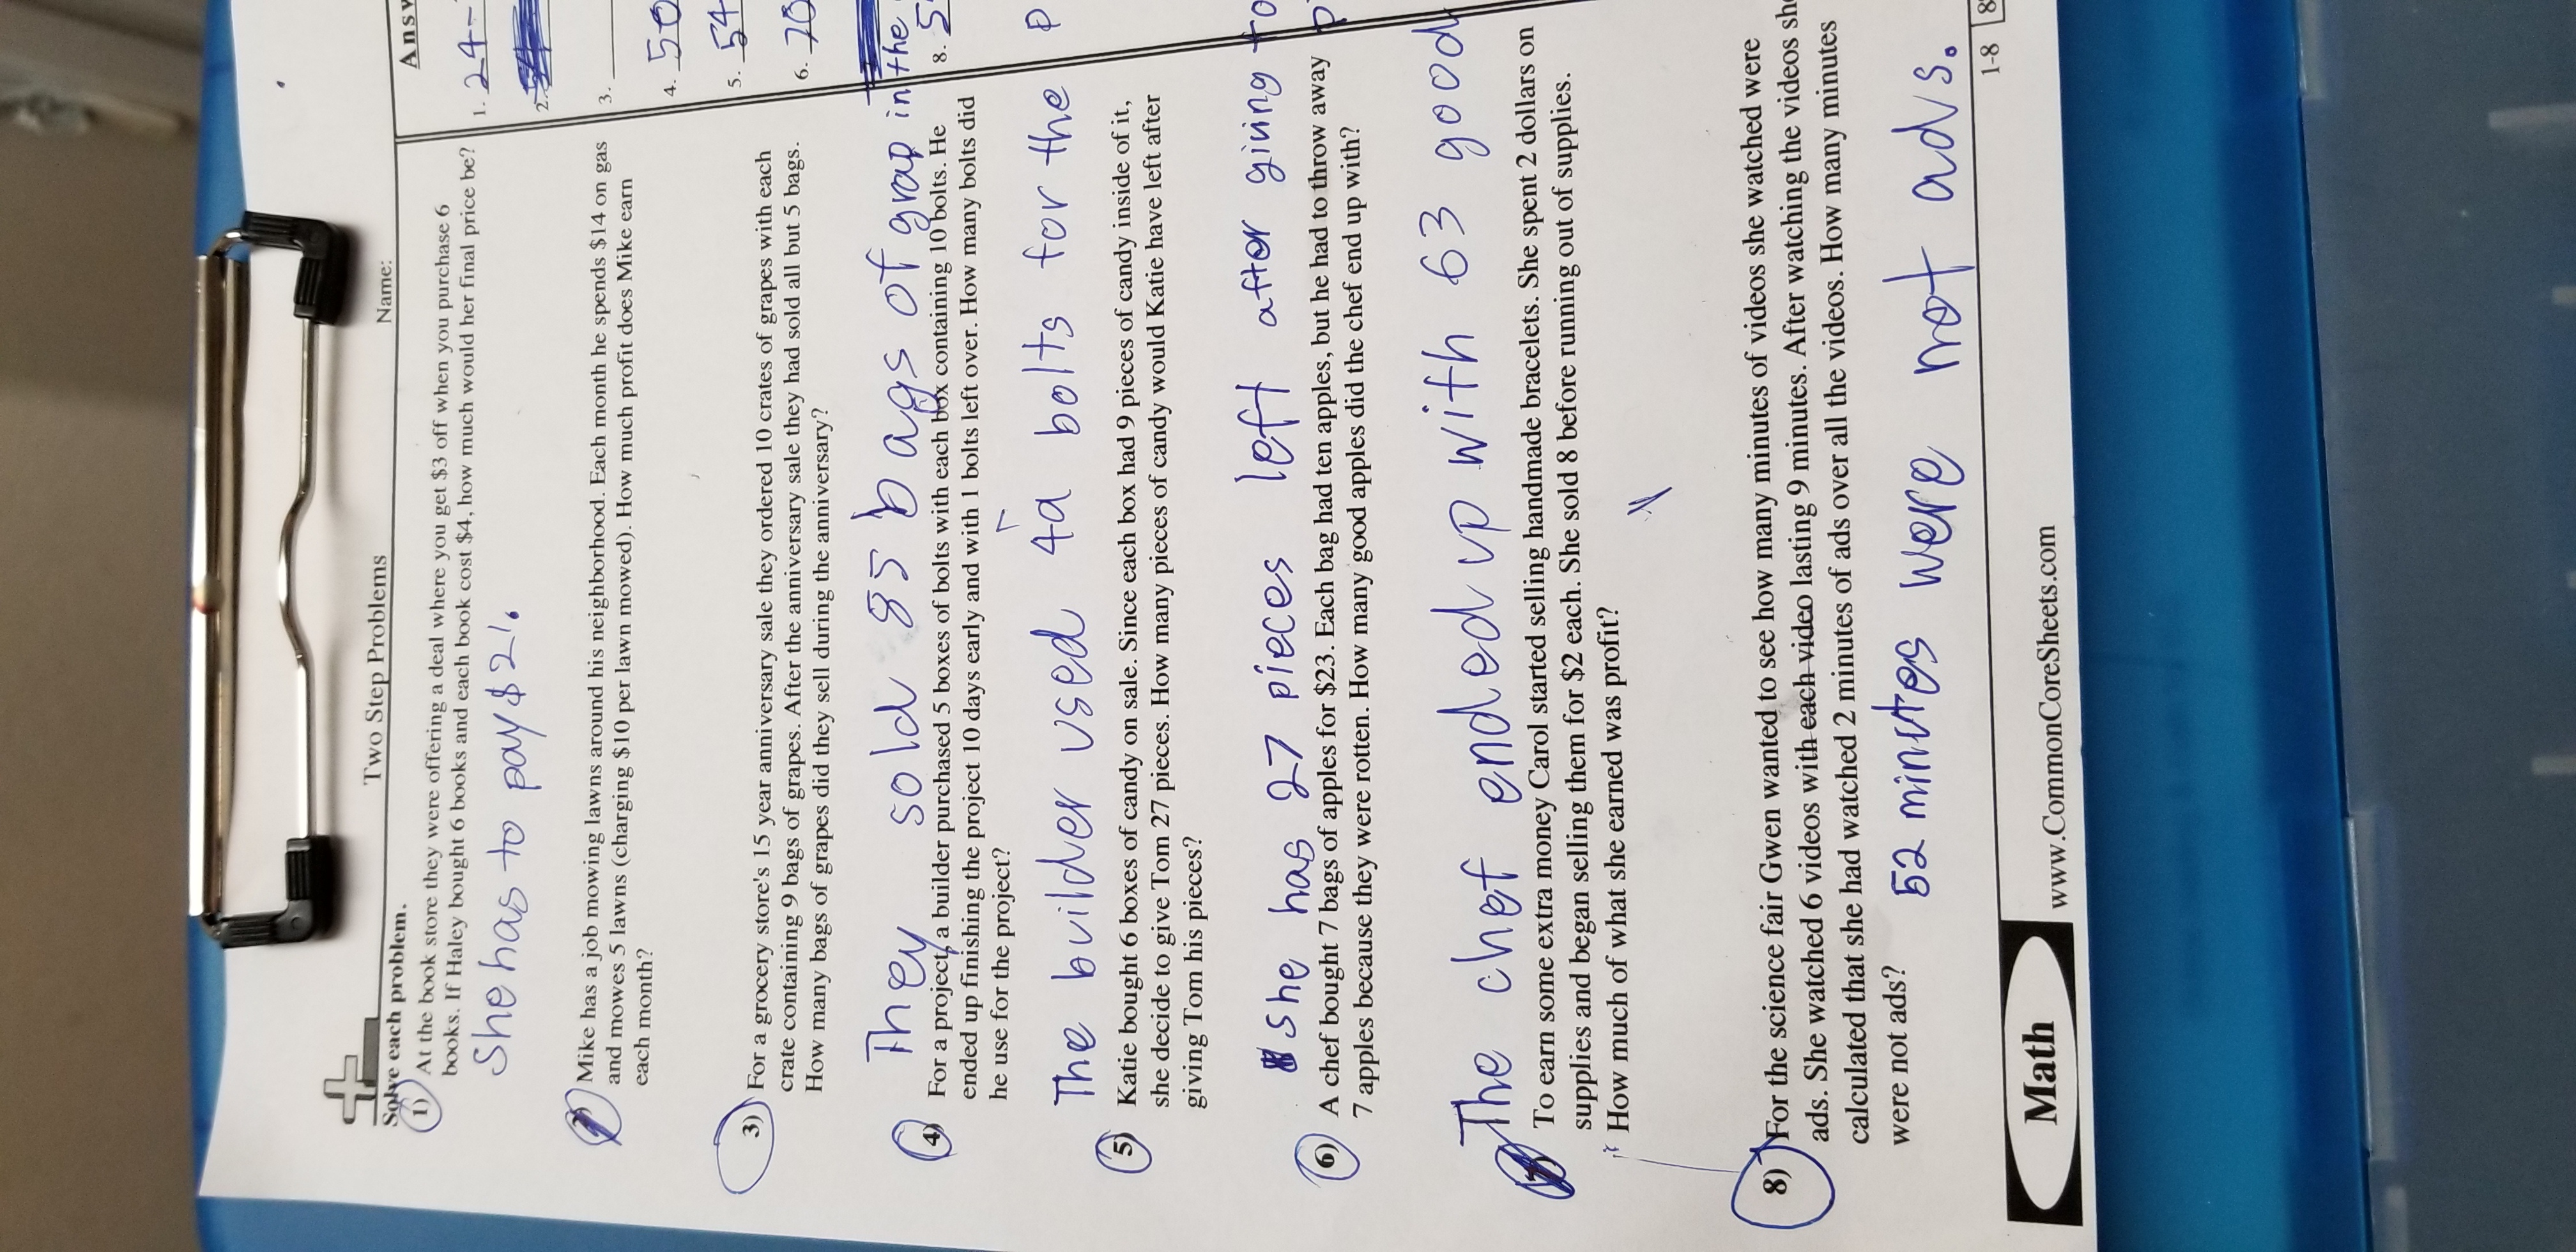 Two Step Problems
Name:
Solve each problem.
Answ
1) At the book store they were offering a deal where you get $3 off when you purchase 6
books. If Haley bought 6 books and each book cost $4, how much would her final price be?
She has to pay $21.
Mike has a job mowing lawns around his neighborhood. Each month he spends $14 on gas
and mowes 5 lawns (charging $10 per lawn mowed). How much profit does Mike earn
each month?
3) For a grocery store's 15 year anniversary sale they ordered 10 crates of grapes with each
crate containing 9 bags of grapes. After the anniversary sale they had sold all but 5 bags.
How many bags of grapes did they sell during the anniversary?
They sold 85 bags of grap in the
4) For a project, a builder purchased 5 boxes of bolts with each box containing 10 bolts. He
ended up finishing the project 10 days early and with 1 bolts left over. How many bolts did
he use for the project?
The builder used 49 bolts for the p
5) Katie bought 6 boxes of candy on sale. Since each box had 9 pieces of candy inside of it,
she decide to give Tom 27 pieces. How many pieces of candy would Katie have left after
giving Tom his pieces?
She has 27 pieces left after giving to
6) A chef bought 7 bags of apples for $23. Each bag had ten apples, but he had to throw away
7 apples because they were rotten. How many good apples did the chef end up with?
The chef ended up with 63 good
To earn some extra money Carol started selling handmade bracelets. She spent 2 dollars on
supplies and began selling them for $2 each. She sold 8 before running out of supplies.
How much of what she earned was profit?
8) For the science fair Gwen wanted to see how many minutes of videos she watched were
ads. She watched 6 videos with each video lasting 9 minutes. After watching the videos she
calculated that she had watched 2 minutes of ads over all the videos. How many minutes
were not ads?
52 minutes were not ads.
1. 24-
2.
3.
4. 50
5. 54
6. 70
8. 5
Math
www.CommonCoreSheets.com
1-8 8